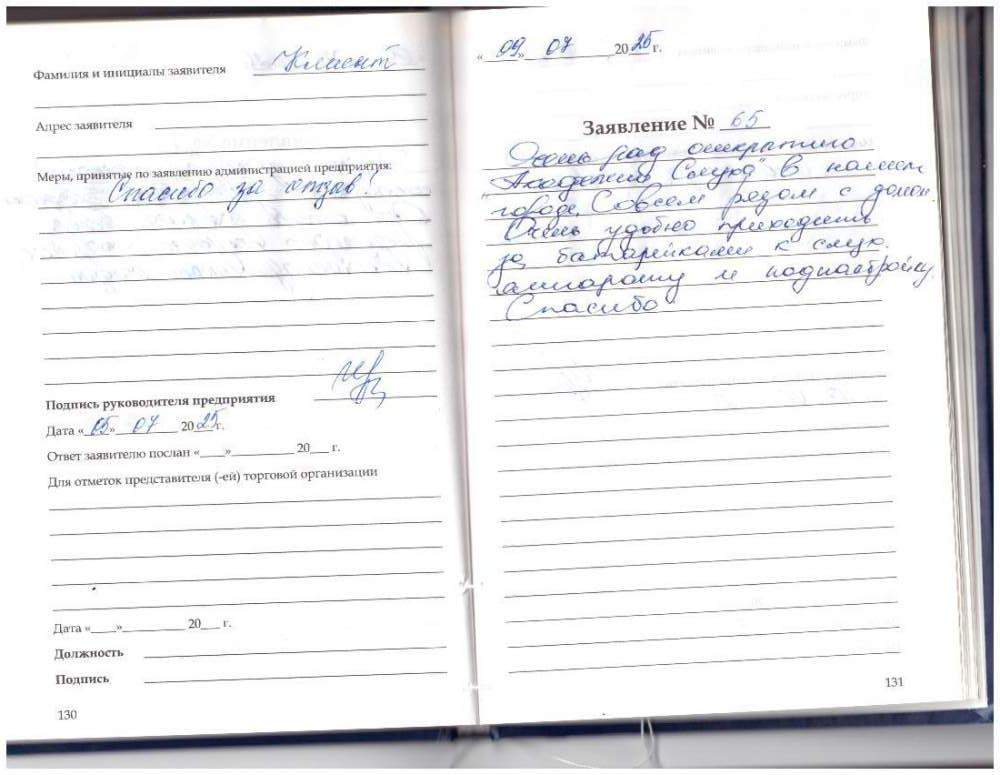 Фамилия и инициалы заявителя Клиент
Адрес заявителя
Меры, принятые по заявлению администрацией предприятия:
Спасибо за отзыв!
Подпись руководителя предприятия
Дата «05» 07 2025 г.
Ответ заявителю послан «___»_________ 20___ г.
Для отметок представителя (-ей) торговой организации
Дата «___»_________ 20___ г.
Должность
Подпись
130
«09» 07 2025 г.
Заявление № 65
Очень рад открытию
"Академия Слуха" в нашем
городе. Совсем рядом с домом
Очень удобно приходить
за батарейками к слух.
аппарату и поднастройку.
Спасибо
131